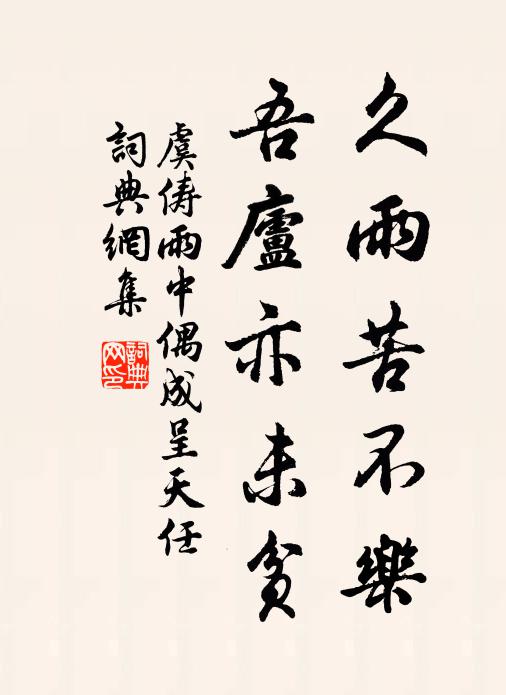 久雨苦不樂
吾廬亦未貧
虞儔雨中偶成呈天任
詞典網集
詞典網印